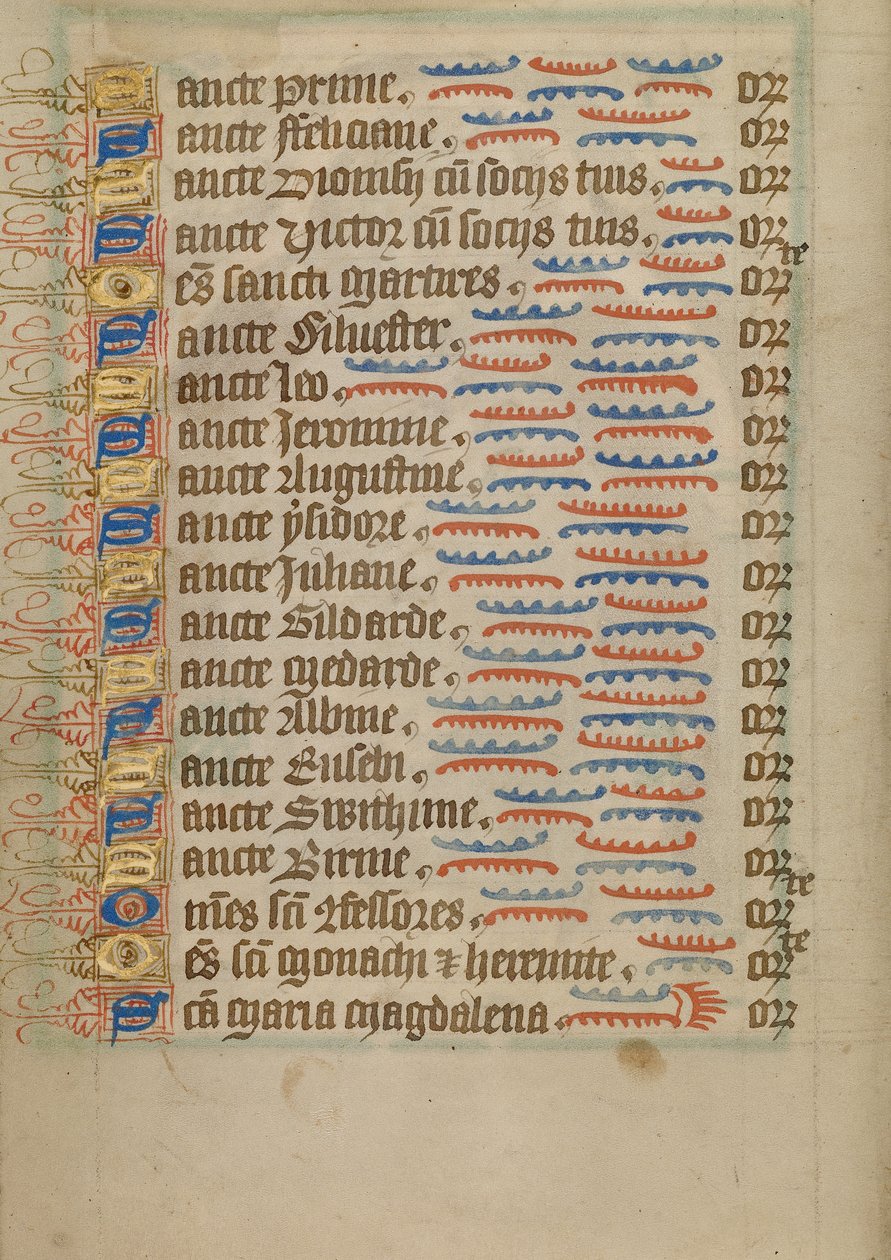 Sancte Prime. orꝛ
Sancte Feliciane. orꝛ
Sancte Dionisij cū socijs tuis. orꝛ
Sancte Victor cū socijs tuis. orꝛ
Oēs sancti Martires. orꝛ te
Sancte Siluester. orꝛ
Sancte Leo. orꝛ
Sancte Jeronime. orꝛ
Sancte Augustine. orꝛ
Sancte ysidore. orꝛ
Sancte Juliane. orꝛ
Sancte Gildarde. orꝛ
Sancte Medarde. orꝛ
Sancte Albine. orꝛ
Sancte Eusebi. orꝛ
Sancte Swithine. orꝛ
Sancte Birine. orꝛ
Om̄es scī ꝯfessores. orꝛ te
Oēs scī Monachi ⁊ heremite. orꝛ te
Scā Maria Magdalena. orꝛ